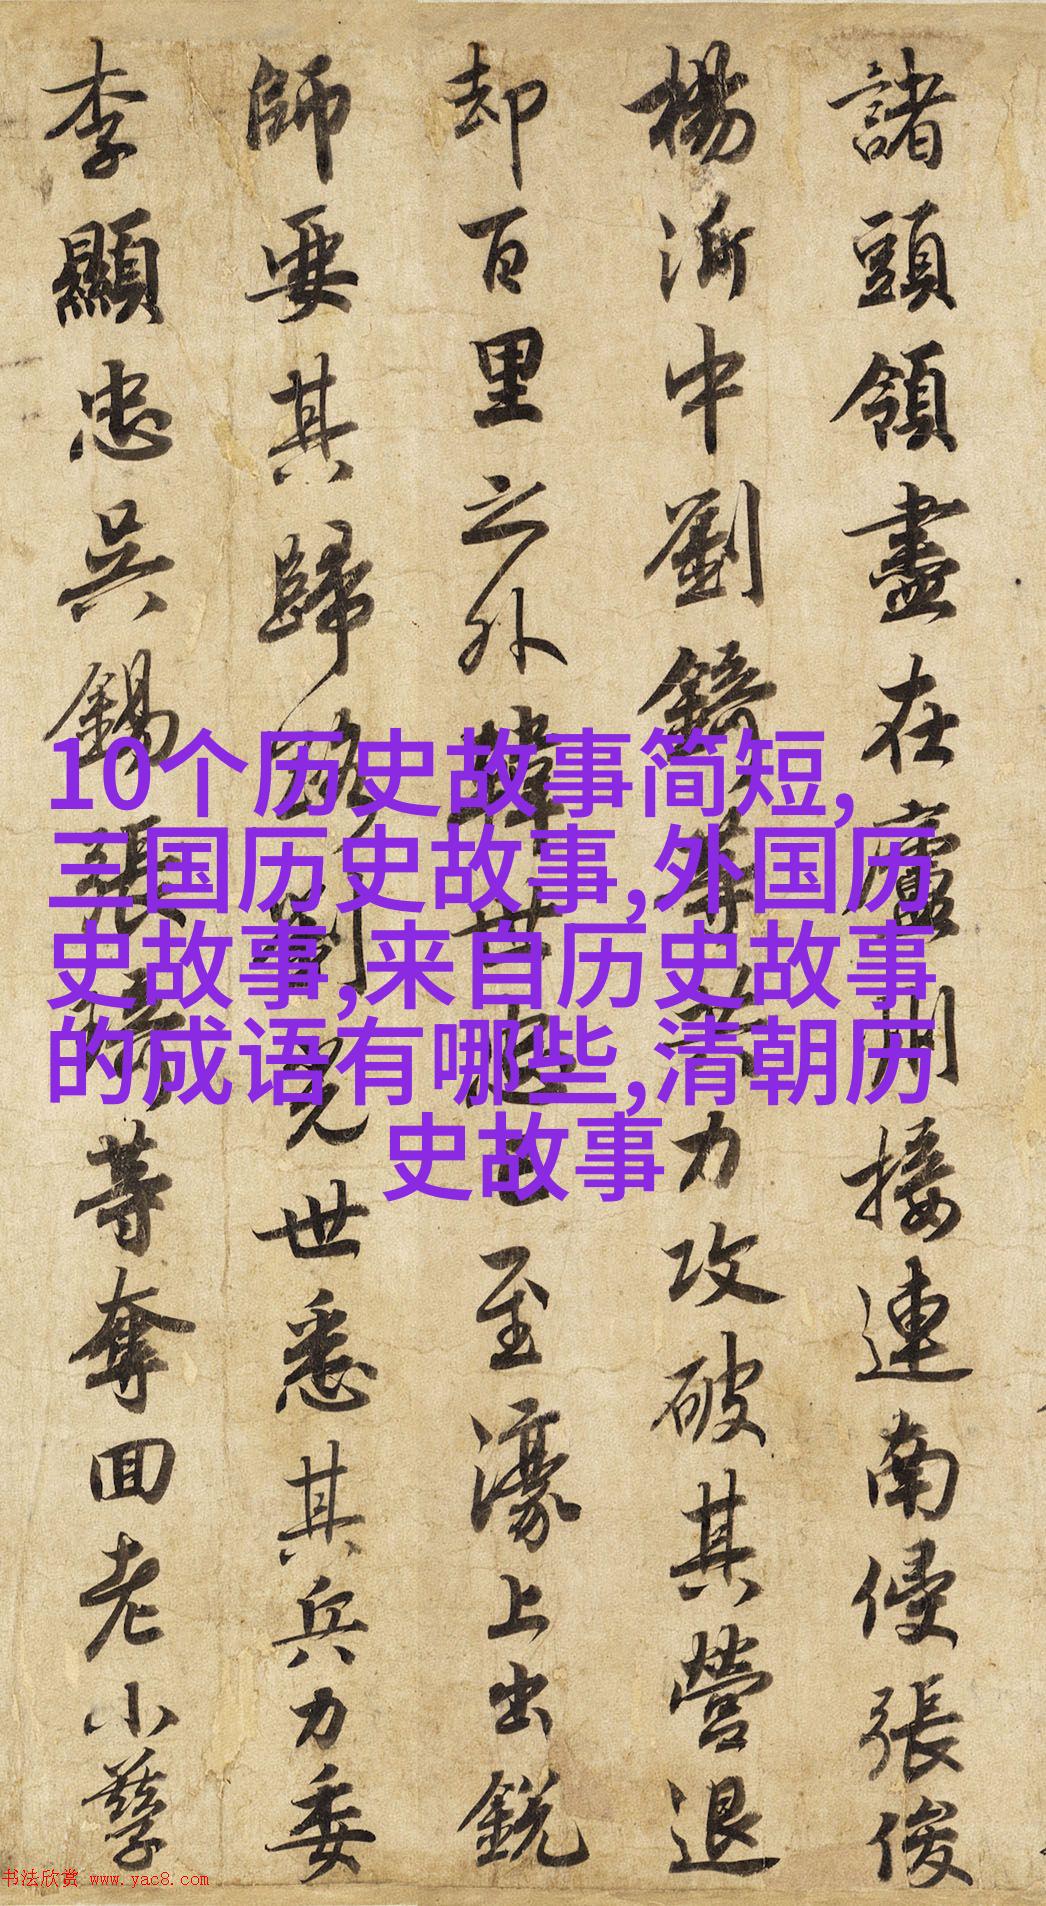 諸頭領盡在廬州接連南侵張俊
楊沂中劉錡等力攻破其營退
却百里之外韓世忠已至濠上出鋭
師要其歸路劉光世悉其兵力委
李顯忠吳錫張琦等奪回老小孳
10个历史故事简短,
三国历史故事,外国历
史故事,来自历史故事
的成语有哪些,清朝历
史故事
书法欣赏 www.yac8.com